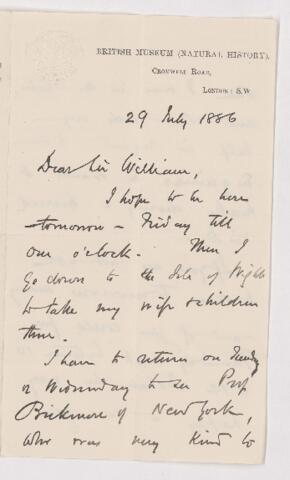 BRITISH MUSEUM (NATURAL HISTORY),
CROMWELL ROAD,
LONDON: S.W
29 July 1886
Dear Sir William,
I hope to be here
tomorrow – Friday till
one o'clock. Then I
go down to the Isle of Wight
to take my wife & children
there.
I have to return on Tuesday
or Wednesday to see Prof
Bickmore of New York,
who was very kind to